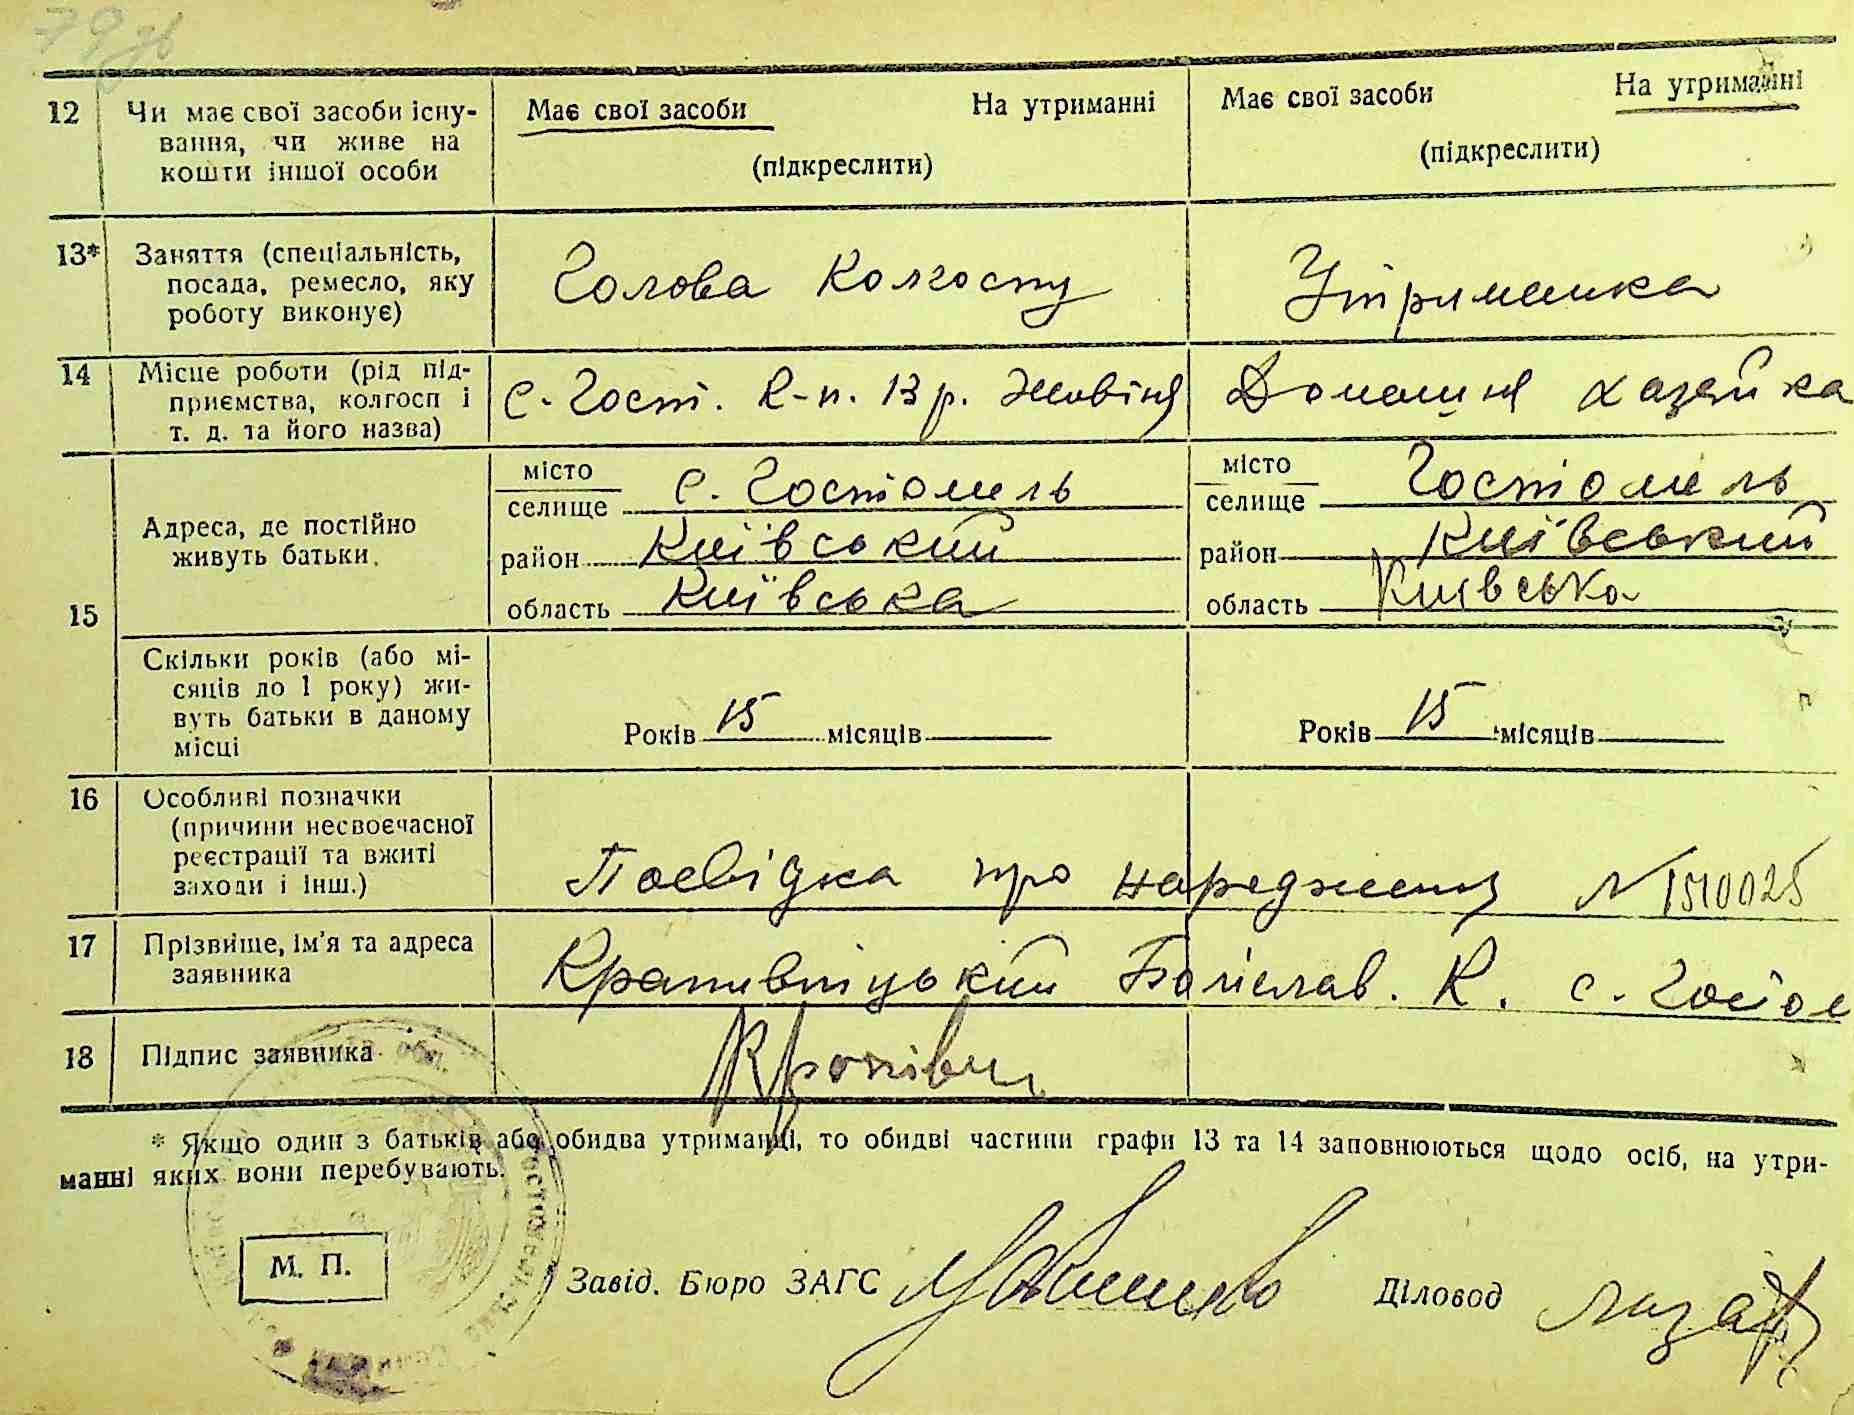 79 зв
12 Чи має свої засоби існу- Має свої засоби На утриманні Має свої засоби На утриманні
вання, чи живе на (підкреслити) (підкреслити)
кошти іншої особи
13* Заняття (спеціальність, Голова Колгоспу Утриманка
посада, ремесло, яку
роботу виконує)
14 Місце роботи (рід під- с. Гост. К-п. 13 р. Жовтня Домашня хазяйка
приємства, колгосп і
т. д. та його назва)
15 Адреса, де постійно живуть батьки. місто с. Гостомель місто Гостомель
селище селище
район Київський район Київський
область Київська область Київська
Скільки років (або мі-
сяців до 1 року) жи-
вуть батьки в даному Років 15 місяців Років 15 місяців
місці
16 Особливі позначки
(причини несвоєчасної
реєстрації та вжиті Посвідка про народження № 1510025
заходи і інш.)
17 Прізвище, ім'я та адреса Крапивніцький Болислав. К. с. Гостом
заявника
18 Підпис заявника Кропівн
* Якщо один з батьків або обидва утриманці, то обидві частини графи 13 та 14 заповнюються щодо осіб, на утри-
манні яких вони перебувають.
М. П. Завід. Бюро ЗАГС Діловод Лазар